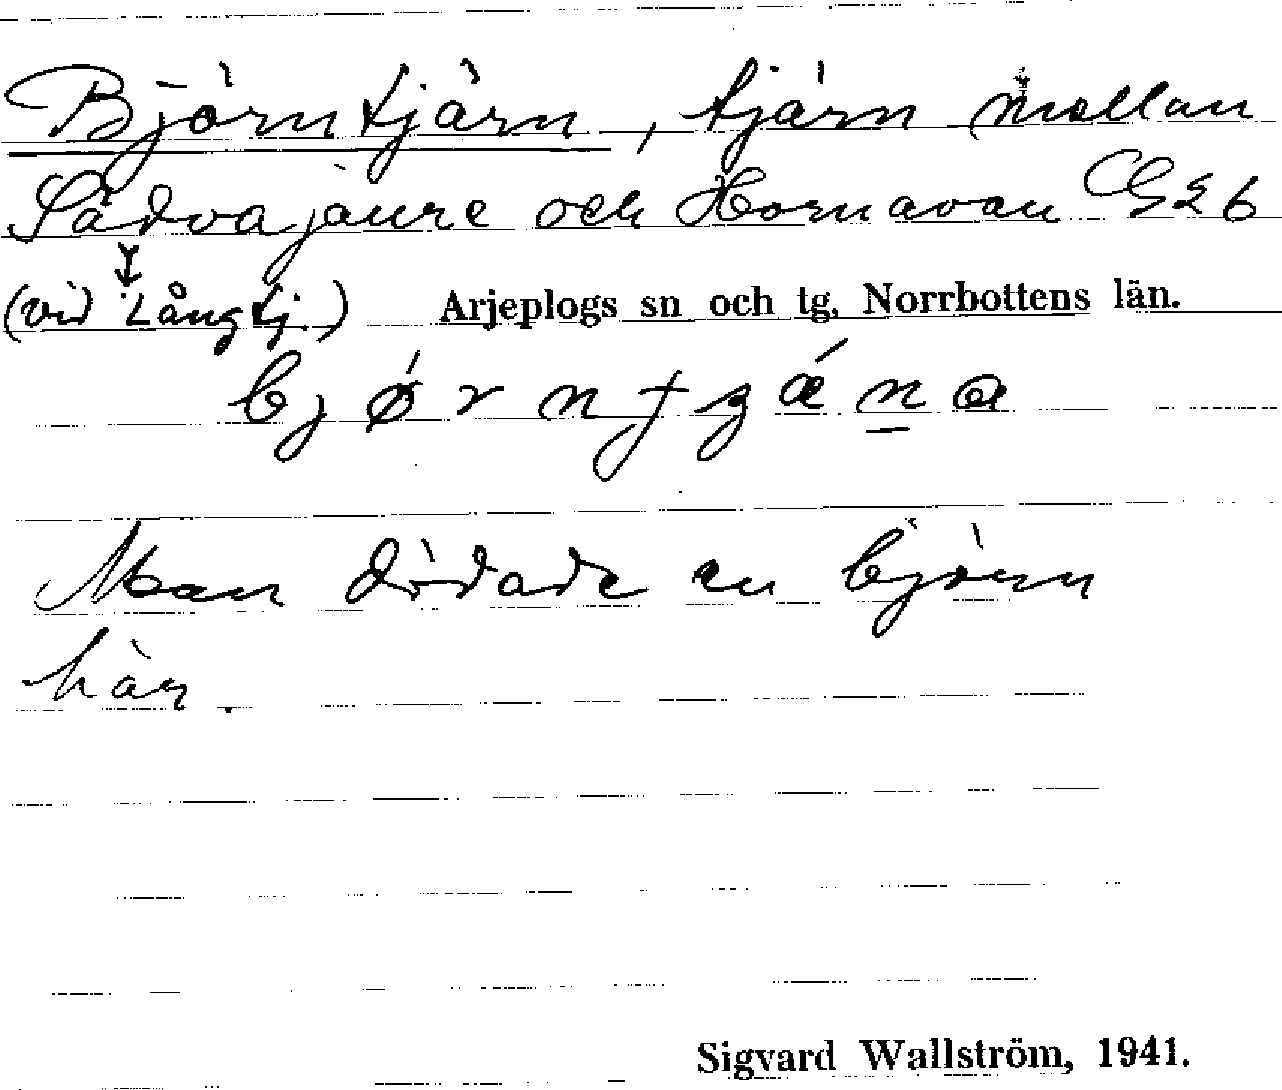 Björntjärn, tjärn mellan
Sädvajaure och Hornavan G26
(vid Långtj.) Arjeplogs sn och tg. Norrbottens län.
Man dödade en björn
här.
Sigvard Wallström, 1941.